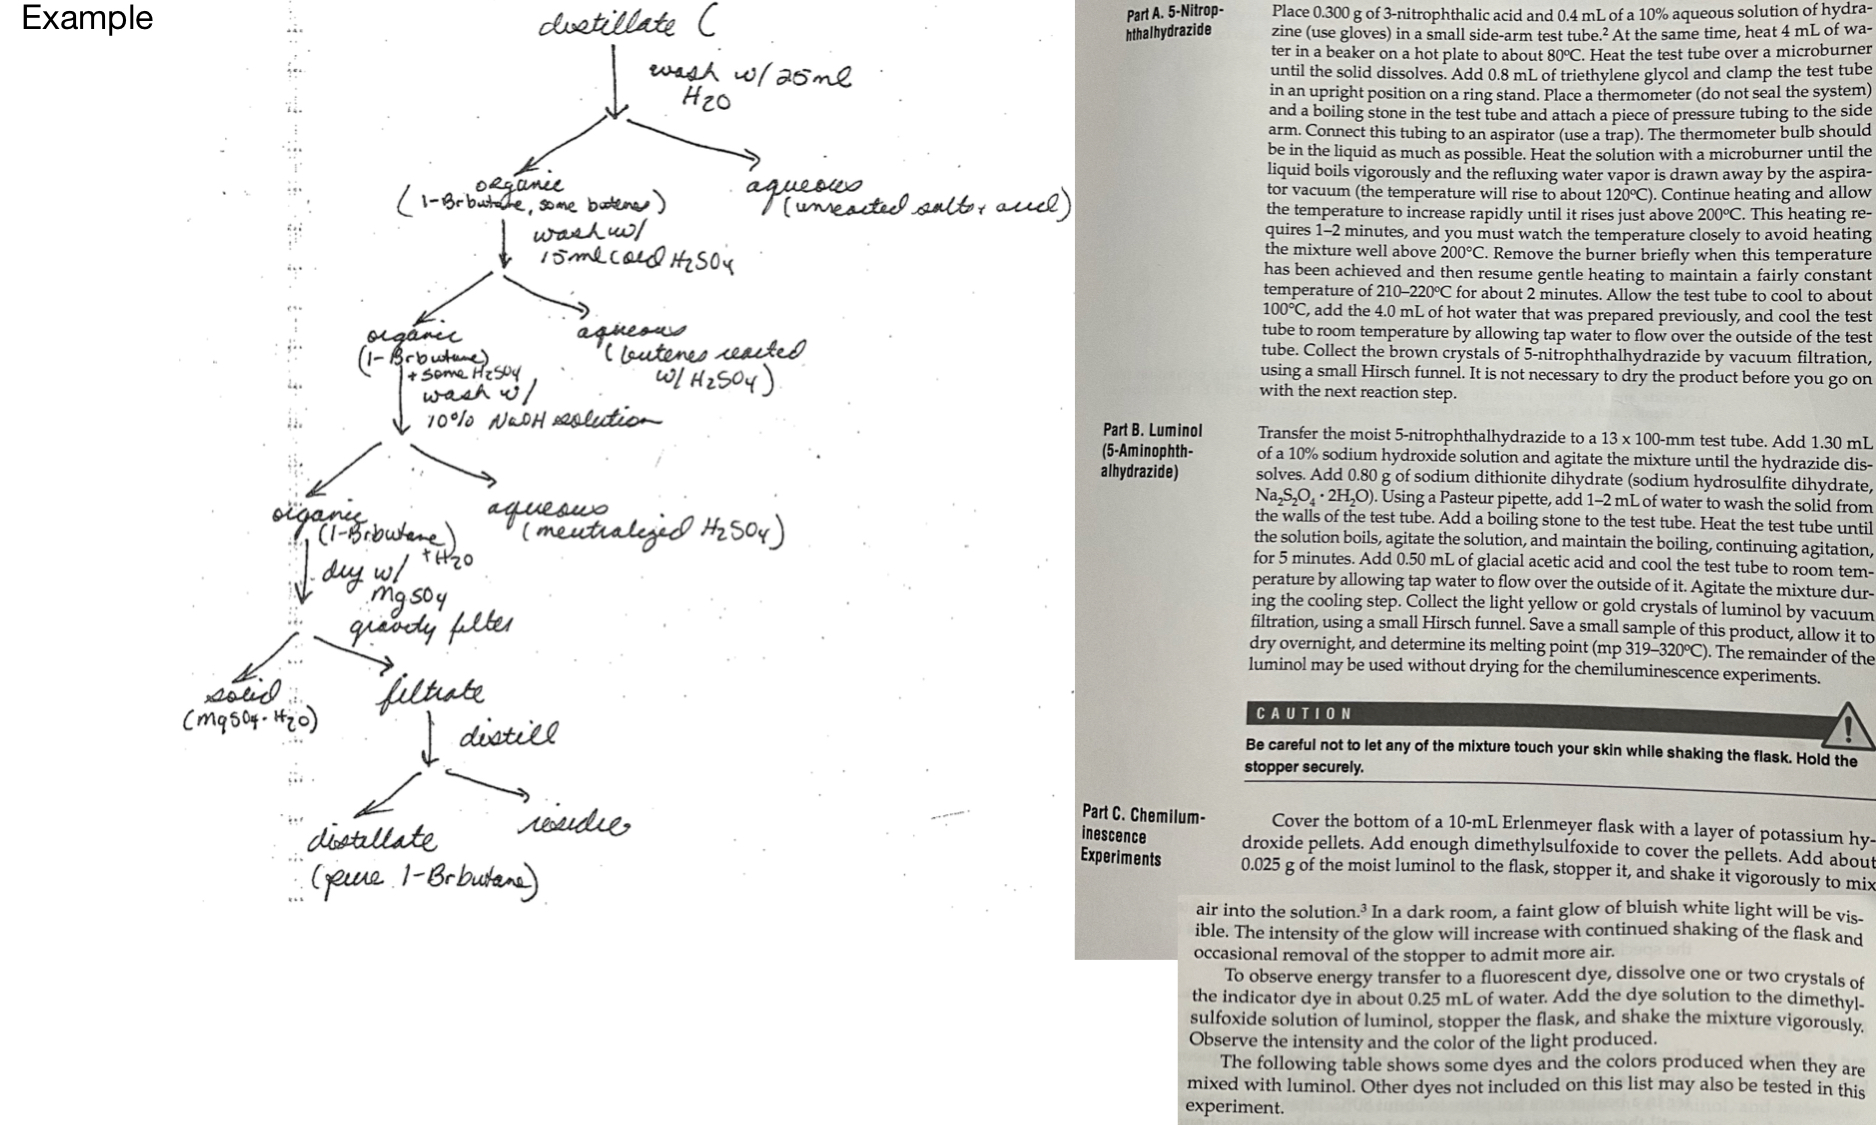 Example
distillate C
wash w/ 25ml
H2O
organic
(1-Brbutane, some butenes)
aqueous
(unreacted salts + acid)
wash w/
15ml cold H2SO4
organic
(1-Brbutane)
+ some H2SO4
aqueous
(butenes reacted
w/ H2SO4)
wash w/
10% NaOH solution
organic
(1-Brbutane)
+ H2O
aqueous
(neutralized H2SO4)
dry w/
MgSO4
gravity filter
solid
(MgSO4·H2O)
filtrate
distill
distillate
(pure 1-Brbutane)
residue
Part A. 5-Nitrop-
hthalhydrazide
Place 0.300 g of 3-nitrophthalic acid and 0.4 mL of a 10% aqueous solution of hydra-
zine (use gloves) in a small side-arm test tube.² At the same time, heat 4 mL of wa-
ter in a beaker on a hot plate to about 80°C. Heat the test tube over a microburner
until the solid dissolves. Add 0.8 mL of triethylene glycol and clamp the test tube
in an upright position on a ring stand. Place a thermometer (do not seal the system)
and a boiling stone in the test tube and attach a piece of pressure tubing to the side
arm. Connect this tubing to an aspirator (use a trap). The thermometer bulb should
be in the liquid as much as possible. Heat the solution with a microburner until the
liquid boils vigorously and the refluxing water vapor is drawn away by the aspira-
tor vacuum (the temperature will rise to about 120°C). Continue heating and allow
the temperature to increase rapidly until it rises just above 200°C. This heating re-
quires 1–2 minutes, and you must watch the temperature closely to avoid heating
the mixture well above 200°C. Remove the burner briefly when this temperature
has been achieved and then resume gentle heating to maintain a fairly constant
temperature of 210–220°C for about 2 minutes. Allow the test tube to cool to about
100°C, add the 4.0 mL of hot water that was prepared previously, and cool the test
tube to room temperature by allowing tap water to flow over the outside of the test
tube. Collect the brown crystals of 5-nitrophthalhydrazide by vacuum filtration,
using a small Hirsch funnel. It is not necessary to dry the product before you go on
with the next reaction step.
Part B. Luminol
(5-Aminophth-
alhydrazide)
Transfer the moist 5-nitrophthalhydrazide to a 13 x 100-mm test tube. Add 1.30 mL
of a 10% sodium hydroxide solution and agitate the mixture until the hydrazide dis-
solves. Add 0.80 g of sodium dithionite dihydrate (sodium hydrosulfite dihydrate,
Na₂S₂O₄ · 2H₂O). Using a Pasteur pipette, add 1–2 mL of water to wash the solid from
the walls of the test tube. Add a boiling stone to the test tube. Heat the test tube until
the solution boils, agitate the solution, and maintain the boiling, continuing agitation,
for 5 minutes. Add 0.50 mL of glacial acetic acid and cool the test tube to room tem-
perature by allowing tap water to flow over the outside of it. Agitate the mixture dur-
ing the cooling step. Collect the light yellow or gold crystals of luminol by vacuum
filtration, using a small Hirsch funnel. Save a small sample of this product, allow it to
dry overnight, and determine its melting point (mp 319–320°C). The remainder of the
luminol may be used without drying for the chemiluminescence experiments.
CAUTION
Be careful not to let any of the mixture touch your skin while shaking the flask. Hold the
stopper securely.
Part C. Chemilum-
inescence
Experiments
Cover the bottom of a 10-mL Erlenmeyer flask with a layer of potassium hy-
droxide pellets. Add enough dimethylsulfoxide to cover the pellets. Add about
0.025 g of the moist luminol to the flask, stopper it, and shake it vigorously to mix
air into the solution.³ In a dark room, a faint glow of bluish white light will be vis-
ible. The intensity of the glow will increase with continued shaking of the flask and
occasional removal of the stopper to admit more air.
To observe energy transfer to a fluorescent dye, dissolve one or two crystals of
the indicator dye in about 0.25 mL of water. Add the dye solution to the dimethyl-
sulfoxide solution of luminol, stopper the flask, and shake the mixture vigorously.
Observe the intensity and the color of the light produced.
The following table shows some dyes and the colors produced when they are
mixed with luminol. Other dyes not included on this list may also be tested in this
experiment.